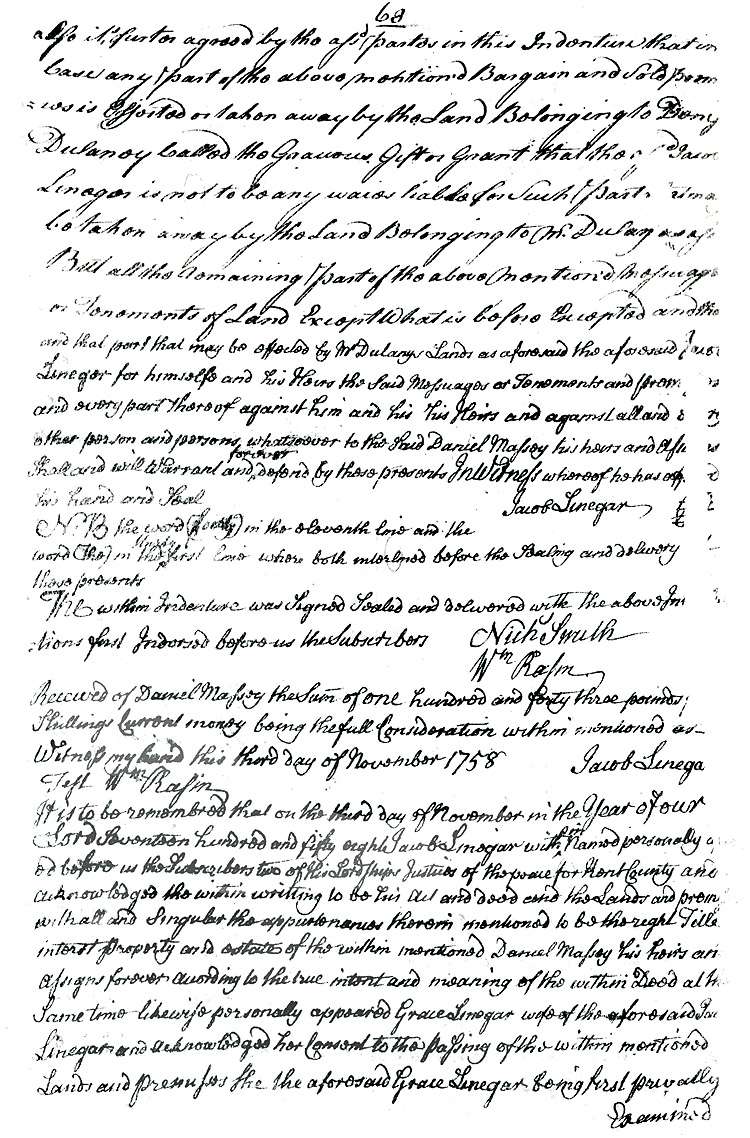 68
also it's furter agreed by the afsd partes in this Indenture that in
Case any part of the above mention'd Bargain and Sold Prem
=ises is Effected or taken away by the Land Belonging to
Dulaney Called the Gift or Grant that the Jacob
Linegar is not to be any waies liable for Such Part
be taken away by the Land Belonging to Mr. Dulany as afs
But all the Remaining part of the above Mention'd Messuages
or Tenements of Land Except What is before Excepted and the
and that part that may be effected by Mr Dulanys Lands as aforesaid the aforesaid Jacob
Linegar for himselfe and his Heirs the Said Messuages or Tenements and prem
and every part thereof against him and his his Heirs and against all and
other person and persons whatsoever to the Said Daniel Massey his heirs and Assi
forever
Shall and will Warrant and defend by these presents In Witness whereof he has
his hand and Seal
Jacob Linegar
N:B the word in the eleventh line and the
word (the) in the first line where both interlined before the Sealing and delivery
these presents
The within Indenture was Signed Sealed and delivered with the above In
tions first Indorsed before us the Subscribers Nich Smith
Wm Rasin
Received of Daniel Massey the Sum of one hundred and forty three pounds
Shillings Current money being the full Consideration within mentioned as
Witness my hand this third day of November 1758 Jacob Linega
Test Wm Rasin
It is to be remembred that on the third day of November in the Year of our
Lord Seventeen hundred and fifty eight Jacob Linegar within Named personally a
ed before us the Subscribers two of his Lordships Justices of the peace for Kent County and
acknowledged the within writting to be his Act and deed and the Lands and prem
with all and Singular the appurtenances therein mentioned to be the right Title
interst property and estate of the within mentioned Daniel Massey his heirs an
Assigns forever acording to the true intent and meaning of the within Deed at th
Same time likewise personally appeared Grace Linegar wife of the aforesaid Jac
Linegar and acknowledged her Consent to the passing of the within mentioned
Lands and premisses She the aforesaid Grace Linegar being first privally
Examined